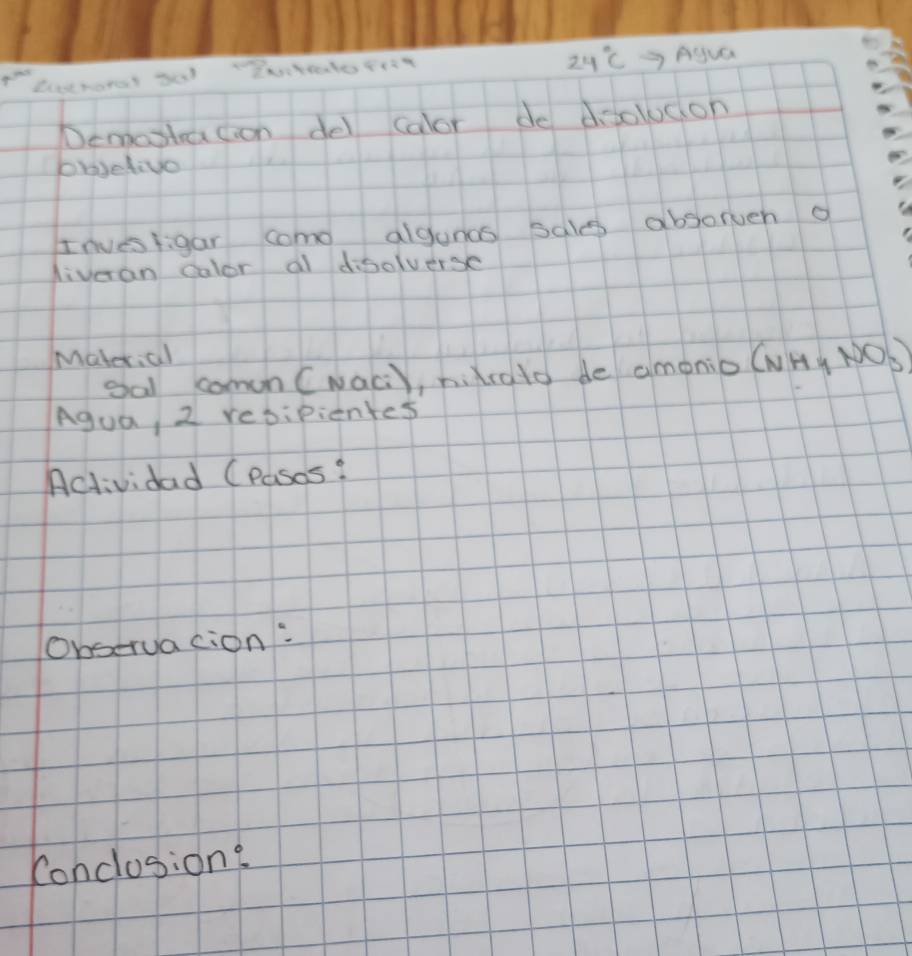 24°C → Agua
Demostracion del calor de disolucion
Objetivo
Investigar como algunas sales absorven o
liveran calor al disolverse
Material
Sal comun (NaCi), nitrato de amonio (NH4 NO3)
Agua, 2 resipientes
Actividad (Pasos:
Observacion:
Conclusion: